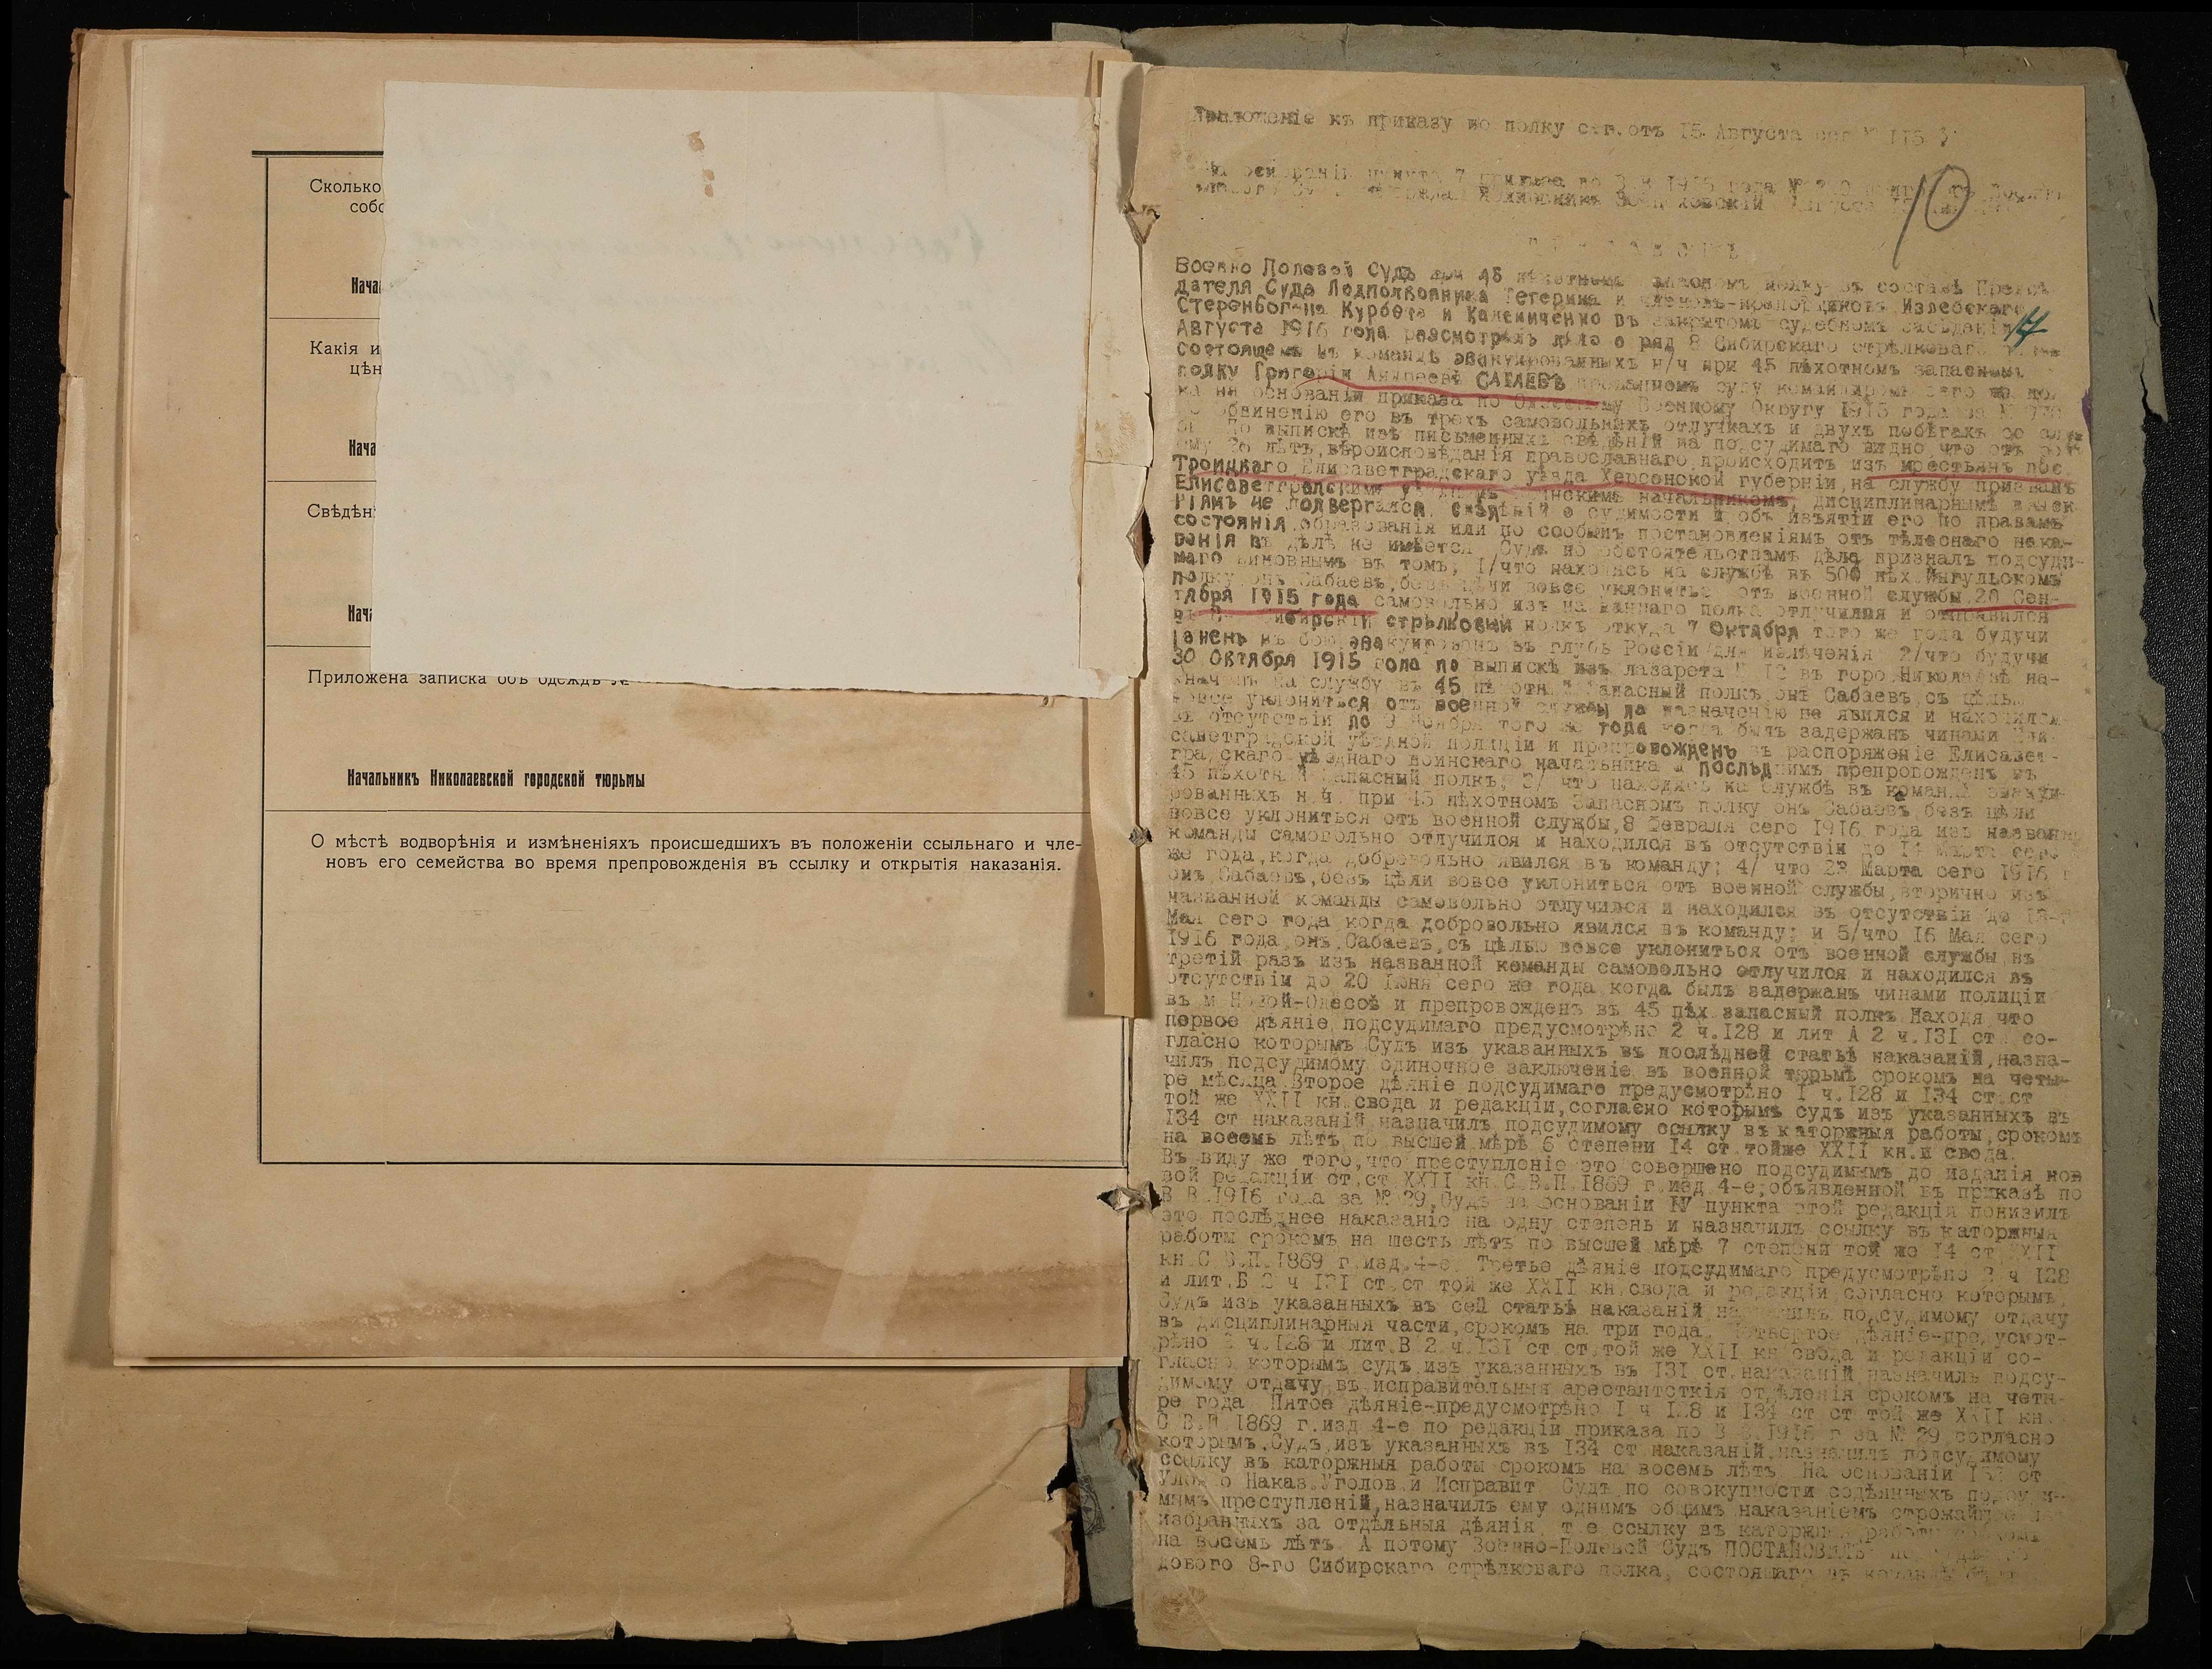 Сколько
собс
Нача
Какія и
цѣн
Нача
Свѣдѣн
Нача
Приложена записка объ одеждѣ №
Начальникъ Николаевской городской тюрьмы
О мѣстѣ водворѣнія и измѣненіяхъ происшедшихъ въ положеніи ссыльнаго и чле-
новъ его семейства во время препровожденія въ ссылку и открытія наказанія.
Приложеніе къ приказу по полку с.г. отъ 15 Августа № 115
10
На основаніи пункта 7 приказа по В.В. 1915 года №
Военно Полевой Судъ при 45 пѣхотномъ запасномъ полку въ составѣ Предсѣ
дателя Суда Подполковника Тетерина и членовъ-прапорщиковъ Излебскаго
Стеренбогена Курбета и Калениченко въ закрытомъ судебномъ засѣданіи
Августа 1916 года разсмотрѣлъ дѣло о ряд 8 Сибирскаго стрѣлковаго полка
состоящемъ въ командѣ эвакуированныхъ н/ч при 45 пѣхотномъ запасномъ
полку Григоріи Андреевѣ САБАЕВѢ преданномъ суду командиромъ сего же пол
ка на основаніи приказа по Одесскому Военному Округу 1915 года за №
по обвиненію его въ трехъ самовольныхъ отлучкахъ и двухъ побѣгахъ со служ
бы По выпискѣ изъ письменныхъ свѣдѣній на подсудимаго видно, что отъ роду
ему 26 лѣтъ, вѣроисповѣданія православнаго, происходитъ изъ крестьянъ пос.
Троицкаго, Елисаветградскаго уѣзда Херсонской губерніи, на службу призванъ
Елисаветградскимъ уѣзднымъ воинскимъ начальникомъ, дисциплинарнымъ взыск
ніямъ не подвергался. Свѣдѣній о судимости и объ изъятіи его по правамъ
состоянія образованія или по сообымъ постановленіямъ отъ тѣлеснаго нака-
занія въ дѣлѣ не имѣется. Судъ по обстоятельствамъ дѣла призналъ подсуди-
маго виновнымъ въ томъ, 1/что находясь на службѣ въ 500 пѣх. Ингульскомъ
полку онъ Сабаевъ, безъ цѣли вовсе уклониться отъ военной службы, 20 Сен-
тября 1915 года самовольно изъ названнаго полка отлучился и отправился
въ 8 Сибирскій стрѣлковый полкъ откуда 7 Октября того же года будучи
раненъ въ бою, эвакуированъ въ глубь Россіи для излѣченія 2/что будучи
30 Октября 1915 года по выпискѣ изъ лазарета № 12 въ горо. Николаевѣ на-
значенъ на службу въ 45 пѣхотный запасный полкъ онъ Сабаевъ съ цѣлью
вовсе уклониться отъ военной службы по назначенію не явился и находился
въ отсутствіи до 9 Ноября того же года когда былъ задержанъ чинами Ели
саветградской уѣздной полиціи и препровожденъ въ распоряженіе Елисавет-
градскаго уѣзднаго воинскаго начальника и послѣднимъ препровожденъ въ
45 пѣхотный запасный полкъ, 3/ что находясь на службѣ въ командѣ эвакуи-
рованныхъ н.ч. при 45 пѣхотномъ запасномъ полку онъ Сабаевъ, безъ цѣли
вовсе уклониться отъ военной службы, 8 февраля сего 1916 года изъ названн
команды самовольно отлучился и находился въ отсутствіи до 14 Марта сего
же года, когда добровольно явился въ команду; 4/ что 23 Марта сего 1916 г
онъ Сабаевъ, безъ цѣли вовсе уклониться отъ военной службы, вторично изъ
названной команды самовольно отлучился и находился въ отсутствіи до
Мая сего года когда добровольно явился въ команду; и 5/что 16 Мая сего
1916 года, онъ, Сабаевъ, съ цѣлью вовсе уклониться отъ военной службы въ
третій разъ изъ названной команды самовольно отлучился и находился въ
отсутствіи до 20 Іюня сего же года когда былъ задержанъ чинами полиціи
въ м Новой-Одессѣ и препровожденъ въ 45 пѣх. запасный полкъ. Находя что
первое дѣяніе подсудимаго предусмотрѣно 2 ч.128 и лит А 2 ч.131 ст со-
гласно которымъ Судъ изъ указанныхъ въ послѣдней статьѣ наказаній, назна-
чилъ подсудимому одиночное заключеніе въ военной тюрьмѣ срокомъ на четы-
ре мѣсяца. Второе дѣяніе подсудимаго предусмотрѣно 1 ч.128 и 134 ст.ст
той же XXII кн. свода и редакціи, согласно которымъ судъ изъ указанныхъ въ
134 ст наказаній назначилъ подсудимому ссылку въ каторжныя работы, срокомъ
на восемь лѣтъ, по высшей мѣрѣ 6 степени 14 ст. тойже XXII кн. и свода.
Въ виду же того, что преступленіе это совершено подсудимымъ до изданія нов
вой редакціи от. ст. XXII кн. С.В.П. 1869 г. изд. 4-е, объявленной въ приказѣ по
В.В. 1916 года за № 29, Судъ на основаніи IV пункта этой редакціи понизилъ
это послѣднее наказаніе на одну степень и назначилъ ссылку въ каторжныя
работы срокомъ на шесть лѣтъ по высшей мѣрѣ 7 степени той же 14 ст XXII
кн. С.В.П. 1869 г. изд. 4-е. Третье дѣяніе подсудимаго предусмотрѣно 2 ч 128
и лит. Б 2 ч 131 ст.ст той же XXII кн. свода и редакціи согласно которымъ,
Судъ изъ указанныхъ въ сей статьѣ наказаній назначилъ подсудимому отдачу
въ дисциплинарныя части, срокомъ на три года. Четвертое дѣяніе-предусмот-
рѣно 2 ч.128 и лит. В 2 ч.131 ст.ст. той же XXII кн свода и редакціи со-
гласно которымъ судъ изъ указанныхъ въ 131 ст. наказаній назначилъ подсу-
димому отдачу въ исправительныя арестантсткія отдѣленія срокомъ на четы-
ре года Пятое дѣяніе-предусмотрѣно 1 ч 128 и 134 ст ст той же XXII кн.
С.В.П. 1869 г. изд 4-е по редакціи приказа по В.В. 1916 г за № 29 согласно
которымъ, Судъ, изъ указанныхъ въ 134 ст наказаній, назначилъ подсудимому
ссылку въ каторжныя работы срокомъ на восемь лѣтъ. На основаніи 152 ст
Улож о Наказ. Уголов. и Исправит. Судъ по совокупности содѣянныхъ подсуди-
мымъ преступленій, назначилъ ему однимъ общимъ наказаніемъ строжайшее
избранныхъ за отдѣльныя дѣянія, т е ссылку въ каторжныя работы срокомъ
на восемь лѣтъ. А потому Военно-Полевой Судъ ПОСТАНОВИЛЪ
дового 8-го Сибирскаго стрѣлковаго полка, состоящаго въ командѣ